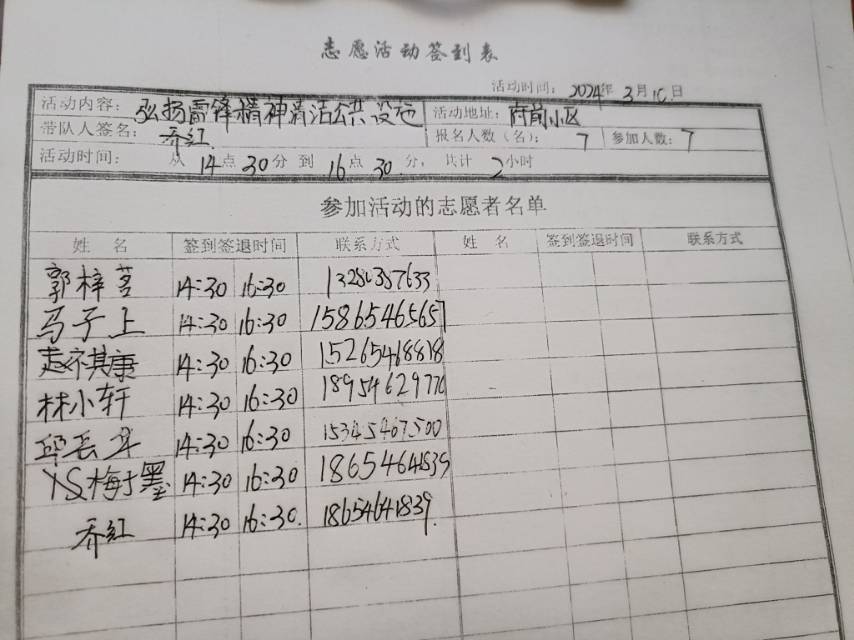 志愿活动签到表
活动时间: 2024年3月10日
活动内容: 弘扬雷锋精神清洁公共设施 活动地址: 府前小区
带队人签名: 乔红 报名人数(名): 7 参加人数: 7
活动时间: 从14点30分到16点30分, 共计2小时
参加活动的志愿者名单
姓 名 签到签退时间 联系方式 姓 名 签到签退时间 联系方式
郭梓茗 14:30 16:30
马子上 14:30 16:30 15865465657
赵祺康 14:30 16:30 15265468818
林小轩 14:30 16:30 18954629770
邱 14:30 16:30 15345467500
梅子墨 14:30 16:30 18654641839
乔红 14:30 16:30. 18654641839.